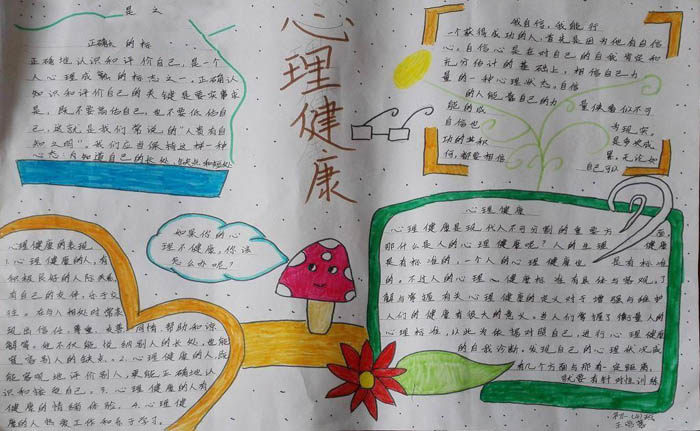 是文
正确的
正确地认识和评价自己，是一个
人心理成熟的标志之一。正确认
知识和评价自己的关键是要实事求
是，既不要高估自己，也不要低估自
己，这就是我们常说的"人贵有自
知之明"。我们应当保持这样一种
心态：内知道自己的长处、缺点和短处
心理健康
我自信，我能行
一个获得成功的人，首先是因为他有自信
心。自信心是在对自己的自我肯定和
充分估计的基础上，相信自己力
量的一种心理状态。自信
的人能靠自己的力量使看似不可
能的成为现实。
自信也是多次成
功的共和量，无论如
何，都要相信自己可以
如果你的心
理不健康，你该
怎么办呢？
心理健康的表现
1.心理健康的人，有
积极良好的人际关系，
有自己的朋友，乐于交
往。在与人相处时常表
现出信任、尊重、友善、同情、帮助和谅
解等。他不仅能悦纳别人的长处，也能
宽容别人的缺点。2.心理健康的人应
能客观地评价别人，更能正确地认
识和接受自己。3.心理健康的人有
健康的情绪体验。4.心理健
康的人热爱工作和乐于学习。
心理健康
心理健康是现代人不可分割的重要方面。
那什么是人的心理健康呢？人的生理健康
是有标准的，一个人的心理健康也是有标准
的。不过人的心理健康标准有具体与客观。了
解与掌握有关心理健康的定义对于增强与维护
人们的健康有很大的意义。当人们掌握了衡量人的
心理标准，以此为依据对照自己，进行心理健康
的自我诊断，发现自己的心理状况成
有几个方面与那有一定距离，
就要有针对性训练